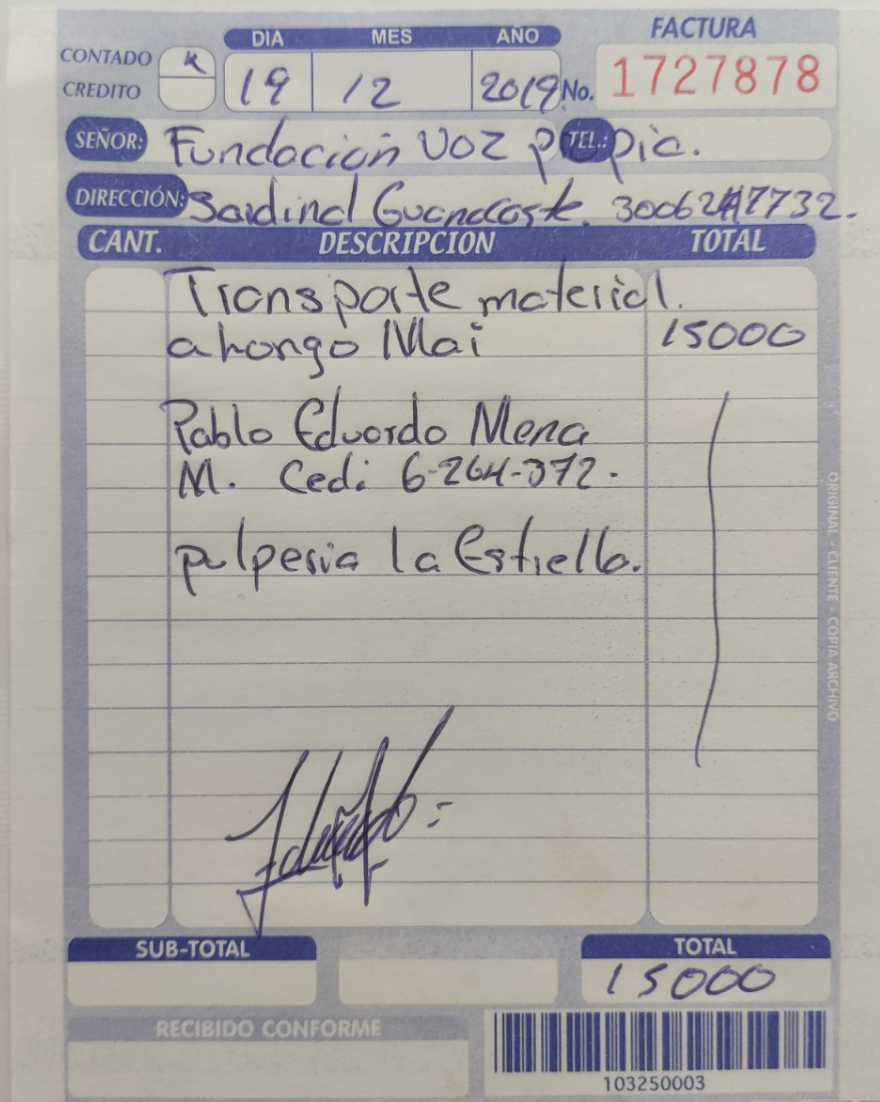 FACTURA
DIA MES AÑO
CONTADO x
CREDITO
19 12 2019 No. 1727878
SEÑOR: Fundacion Voz propia. TEL.:
DIRECCIÓN: Sardinal Guanacaste. 3006247732.
CANT. DESCRIPCION TOTAL
Transporte material.
a hongo Mai 15000
Pablo Eduardo Mena
M. Ced: 6-264-372.
pulperia la Estrella.
ORIGINAL - CLIENTE - COPIA ARCHIVO
SUB-TOTAL TOTAL
15000
RECIBIDO CONFORME
103250003